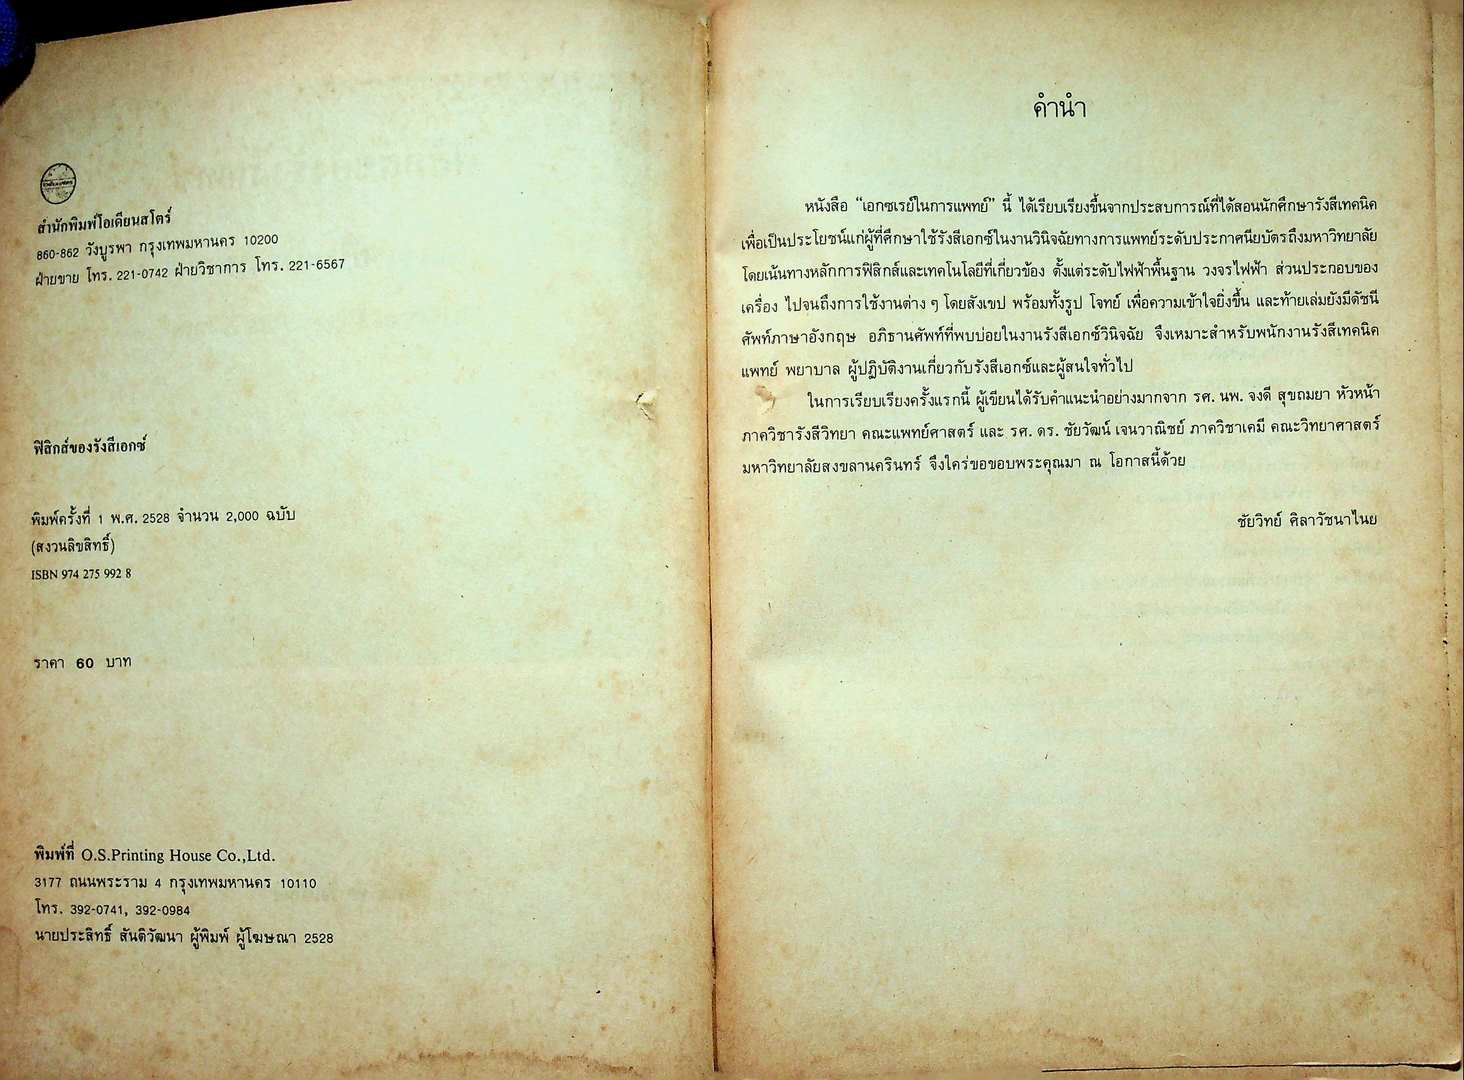 สำนักพิมพ์โอเดียนสโตร์
860-862 วังบูรพา กรุงเทพมหานคร 10200
ฝ่ายขาย โทร. 221-0742 ฝ่ายวิชาการ โทร. 221-6567
ฟิสิกส์ของรังสีเอกซ์
พิมพ์ครั้งที่ 1 พ.ศ. 2528 จำนวน 2,000 ฉบับ
(สงวนลิขสิทธิ์)
ISBN 974 275 992 8
ราคา 60 บาท
พิมพ์ที่ O.S.Printing House Co.,Ltd.
3177 ถนนพระราม 4 กรุงเทพมหานคร 10110
โทร. 392-0741, 392-0984
นายประสิทธิ์ สันติวัฒนา ผู้พิมพ์ ผู้โฆษณา 2528
คำนำ
หนังสือ “เอกซเรย์ในการแพทย์” นี้ ได้เรียบเรียงขึ้นจากประสบการณ์ที่ได้สอนนักศึกษารังสีเทคนิค
เพื่อเป็นประโยชน์แก่ผู้ที่ศึกษาใช้รังสีเอกซ์ในงานวินิจฉัยทางการแพทย์ระดับประกาศนียบัตรถึงมหาวิทยาลัย
โดยเน้นทางหลักการฟิสิกส์และเทคโนโลยีที่เกี่ยวข้อง ตั้งแต่ระดับไฟฟ้าพื้นฐาน วงจรไฟฟ้า ส่วนประกอบของ
เครื่อง ไปจนถึงการใช้งานต่าง ๆ โดยสังเขป พร้อมทั้งรูป โจทย์ เพื่อความเข้าใจยิ่งขึ้น และท้ายเล่มยังมีดัชนี
ศัพท์ภาษาอังกฤษ อภิธานศัพท์ที่พบบ่อยในงานรังสีเอกซ์วินิจฉัย จึงเหมาะสำหรับพนักงานรังสีเทคนิค
แพทย์ พยาบาล ผู้ปฏิบัติงานเกี่ยวกับรังสีเอกซ์และผู้สนใจทั่วไป
ในการเรียบเรียงครั้งแรกนี้ ผู้เขียนได้รับคำแนะนำอย่างมากจาก รศ. นพ. จงดี สุขถมยา หัวหน้า
ภาควิชารังสีวิทยา คณะแพทย์ศาสตร์ และ รศ. ดร. ชัยวัฒน์ เจนวาณิชย์ ภาควิชาเคมี คณะวิทยาศาสตร์
มหาวิทยาลัยสงขลานครินทร์ จึงใคร่ขอขอบพระคุณมา ณ โอกาสนี้ด้วย
ชัยวิทย์ ศิลาวัชนาไนย